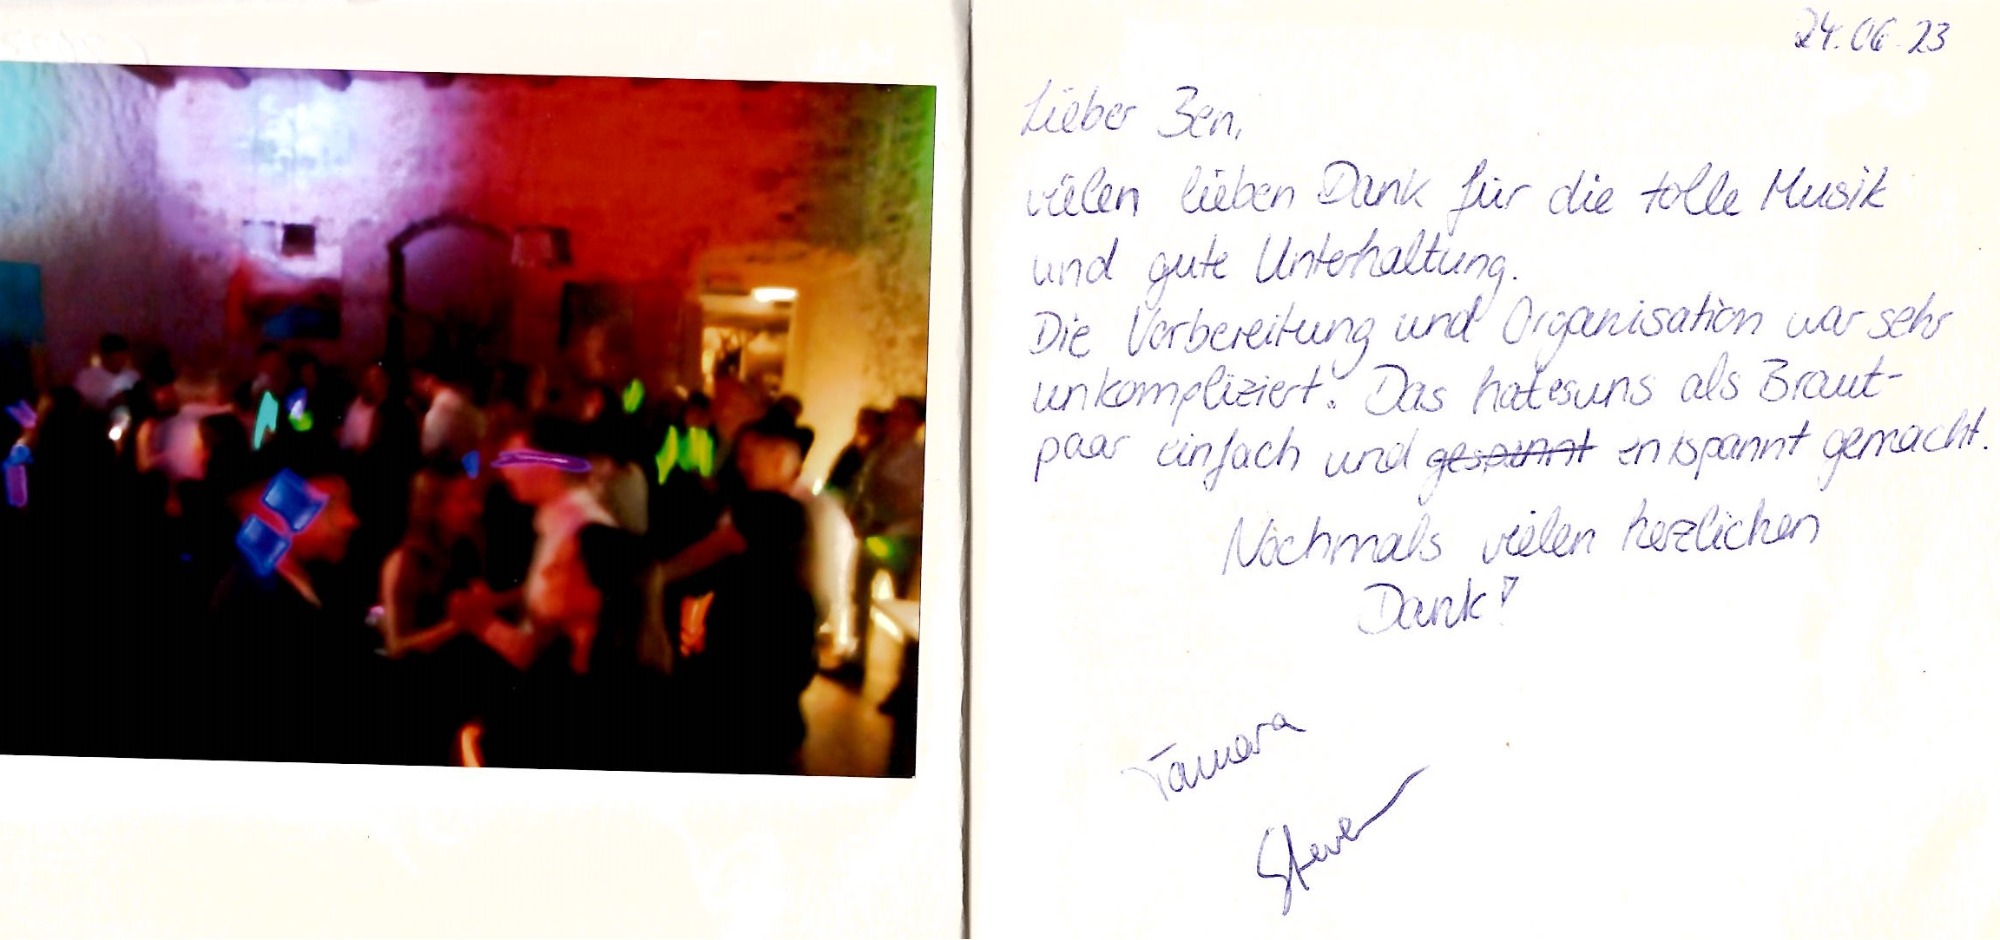 24.06.23
Lieber Ben,
vielen lieben Dank für die tolle Musik
und gute Unterhaltung.
Die Vorbereitung und Organisation war sehr
unkompliziert. Das hat es uns als Braut-
paar einfach und gespannt entspannt gemacht.
Nochmals vielen herzlichen
Dank!
Tamara
Steven